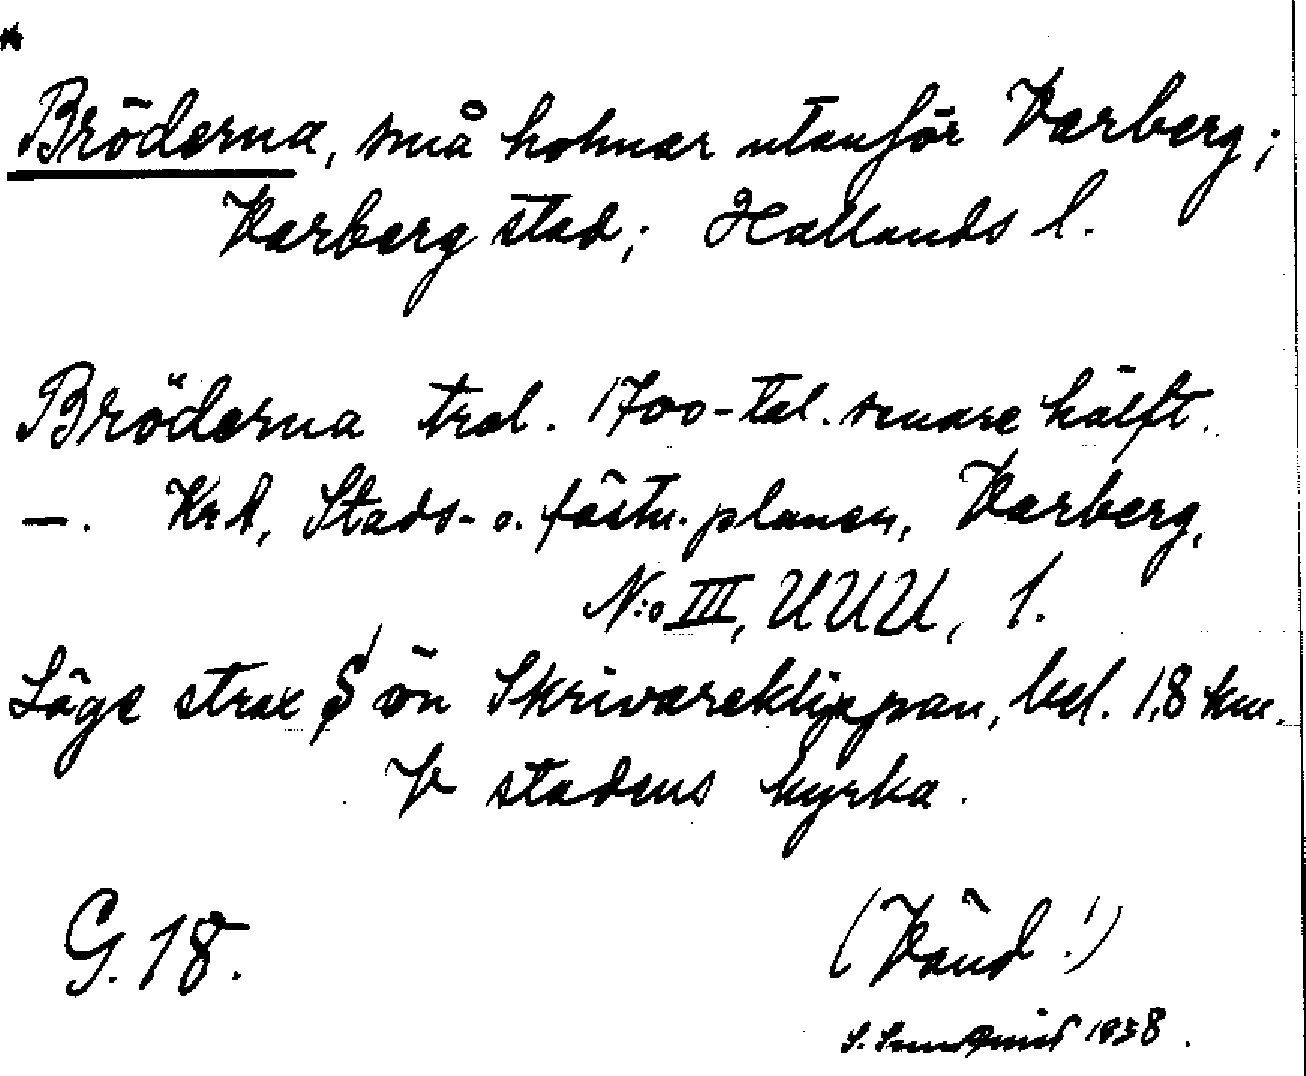 Bröderna, små holmar utanför Varberg;
Varberg stad; Hallands l.
Bröderna trol. 1700-tal. senare hälft.
—. KrA, Stads- o. fästn. planer, Varberg,
N:o III, UUU, 1.
Läge strax S ön Skrivareklippan, bel. 1,8 km.
V stadens kyrka.
G. 18.
(Vänd!)
S. 1938.